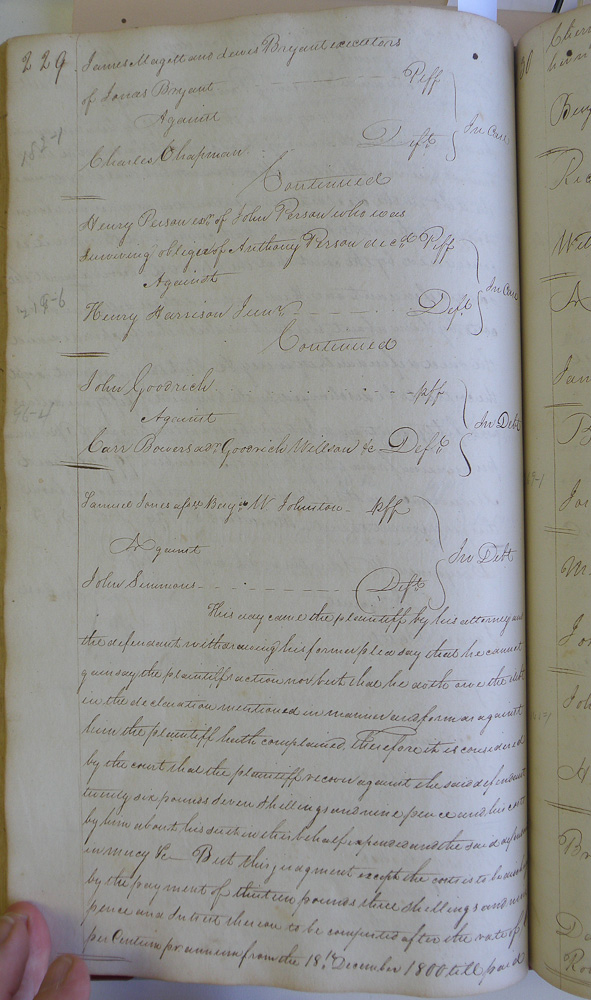 229
James Magett and Lewis Bryant executors
of Jonas Bryant Plff
Against In Case
Charles Chapman Deft
Continued
Henry Person exr. of John Person who was
surviving obligee of Anthony Person decd. Plff
Against In Case
Henry Harrison Junr. Deft
Continued
John Goodrich plff
Against In Debt
Carr Bowers adr. Goodrich Willson &c Deft.
Samuel Jones Benj. W Johnston plff
Against In Debt
John Simmons Deft.
This day came the plaintiff by his attorney and
the defendant withdrawing his former plea say that he cannot
gainsay the plaintiff action nor but that he doth owe the debt
in the declaration mentioned in manner and form as against
him the plaintiff hath complained, Therefore it is considered
by the court that the plaintiff recover against the said defendant
twenty six pounds seven shillings and nine pence and his costs
by him about his suit in this behalf expended and the said
in mercy &c But this judgment except the costs is to be
by the payment of thirteen pounds three shillings and
pence and Interest thereon to be computed after the rate of
per Centum pr annum from the 18th. December 1800 till paid